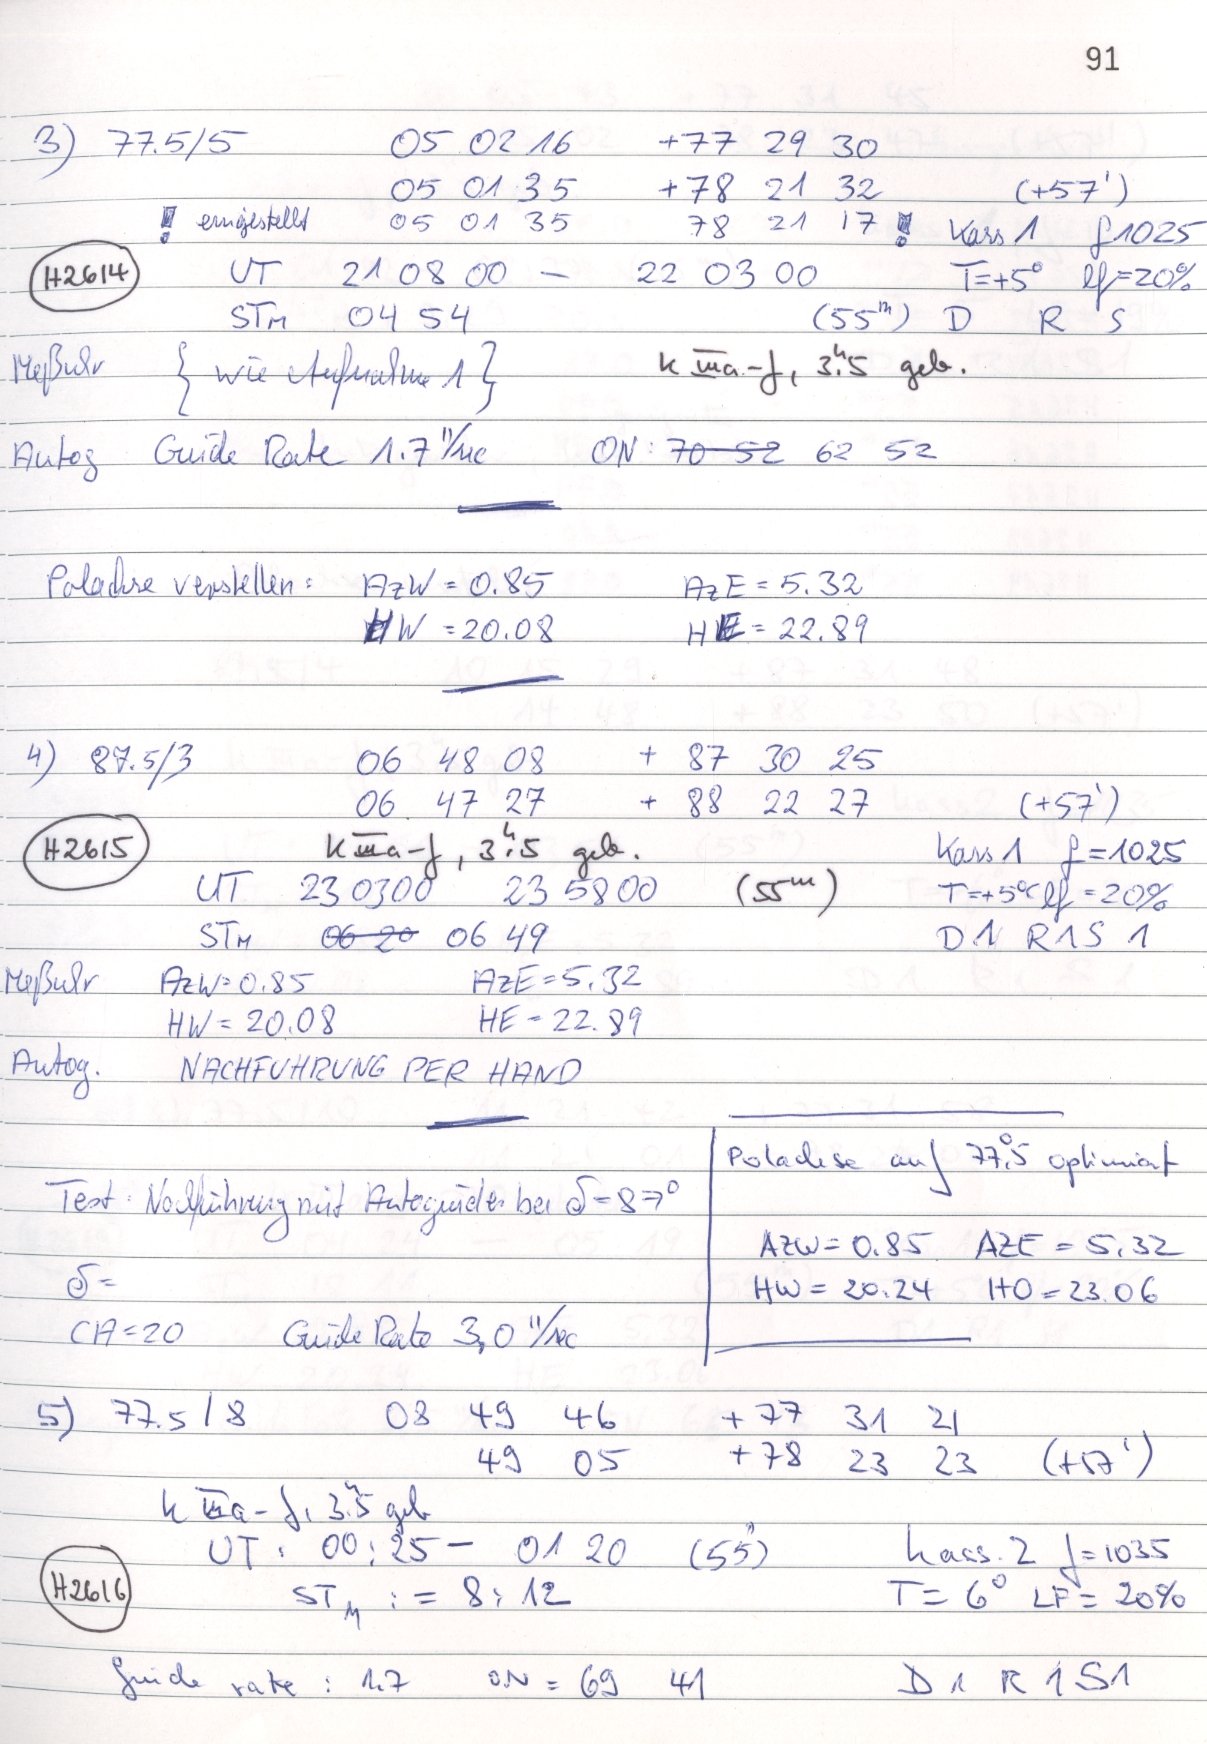 91
3) 77.5/5 05 02 16 +77 29 30
05 01 35 +78 21 32 (+57')
! eingestellt 05 01 35 78 21 17 ! Kass 1 f1025
H2614 UT 21 08 00 – 22 03 00 T=+5° lf=20%
STM 04 54 (55m) D R S
Meßuhr { wie Aufnahme 1 } K IIIa-f, 3h.5 geb.
Autog Guide Rate 1.7"/sec ON: 70 52 62 52
Polachse verstellen: AzW = 0.85 AzE = 5.32
HW = 20.08 HE = 22.89
4) 87.5/3 06 48 08 + 87 30 25
06 47 27 + 88 22 27 (+57')
H2615 K IIIa-f, 3h.5 geb. Kass 1 f=1025
UT 23 03 00 23 58 00 (55m) T=+5°C lf=20%
STM 06 20 06 49 D1 R1 S 1
Meßuhr AzW=0.85 AzE=5.32
HW = 20.08 HE = 22.89
Autog. NACHFUHRUNG PER HAND
Polachse auf 77°.5 optimiert
Test: Nachführung mit Autoguider bei δ=87°
AZW = 0.85 AZE = 5.32
δ=
HW = 20.24 HO = 23.06
CA=20 Guide Rate 3,0"/sec
5) 77.5/8 08 49 46 +77 31 21
49 05 +78 23 23 (+57')
K IIIa-f, 3h.5 geb
UT: 00:25 – 01 20 (55m) Kass. 2 f=1035
H2616 STM := 8:12 T= 6° LF= 20%
Guide rate: 1.7 ON = 69 41 D1 R1 S1